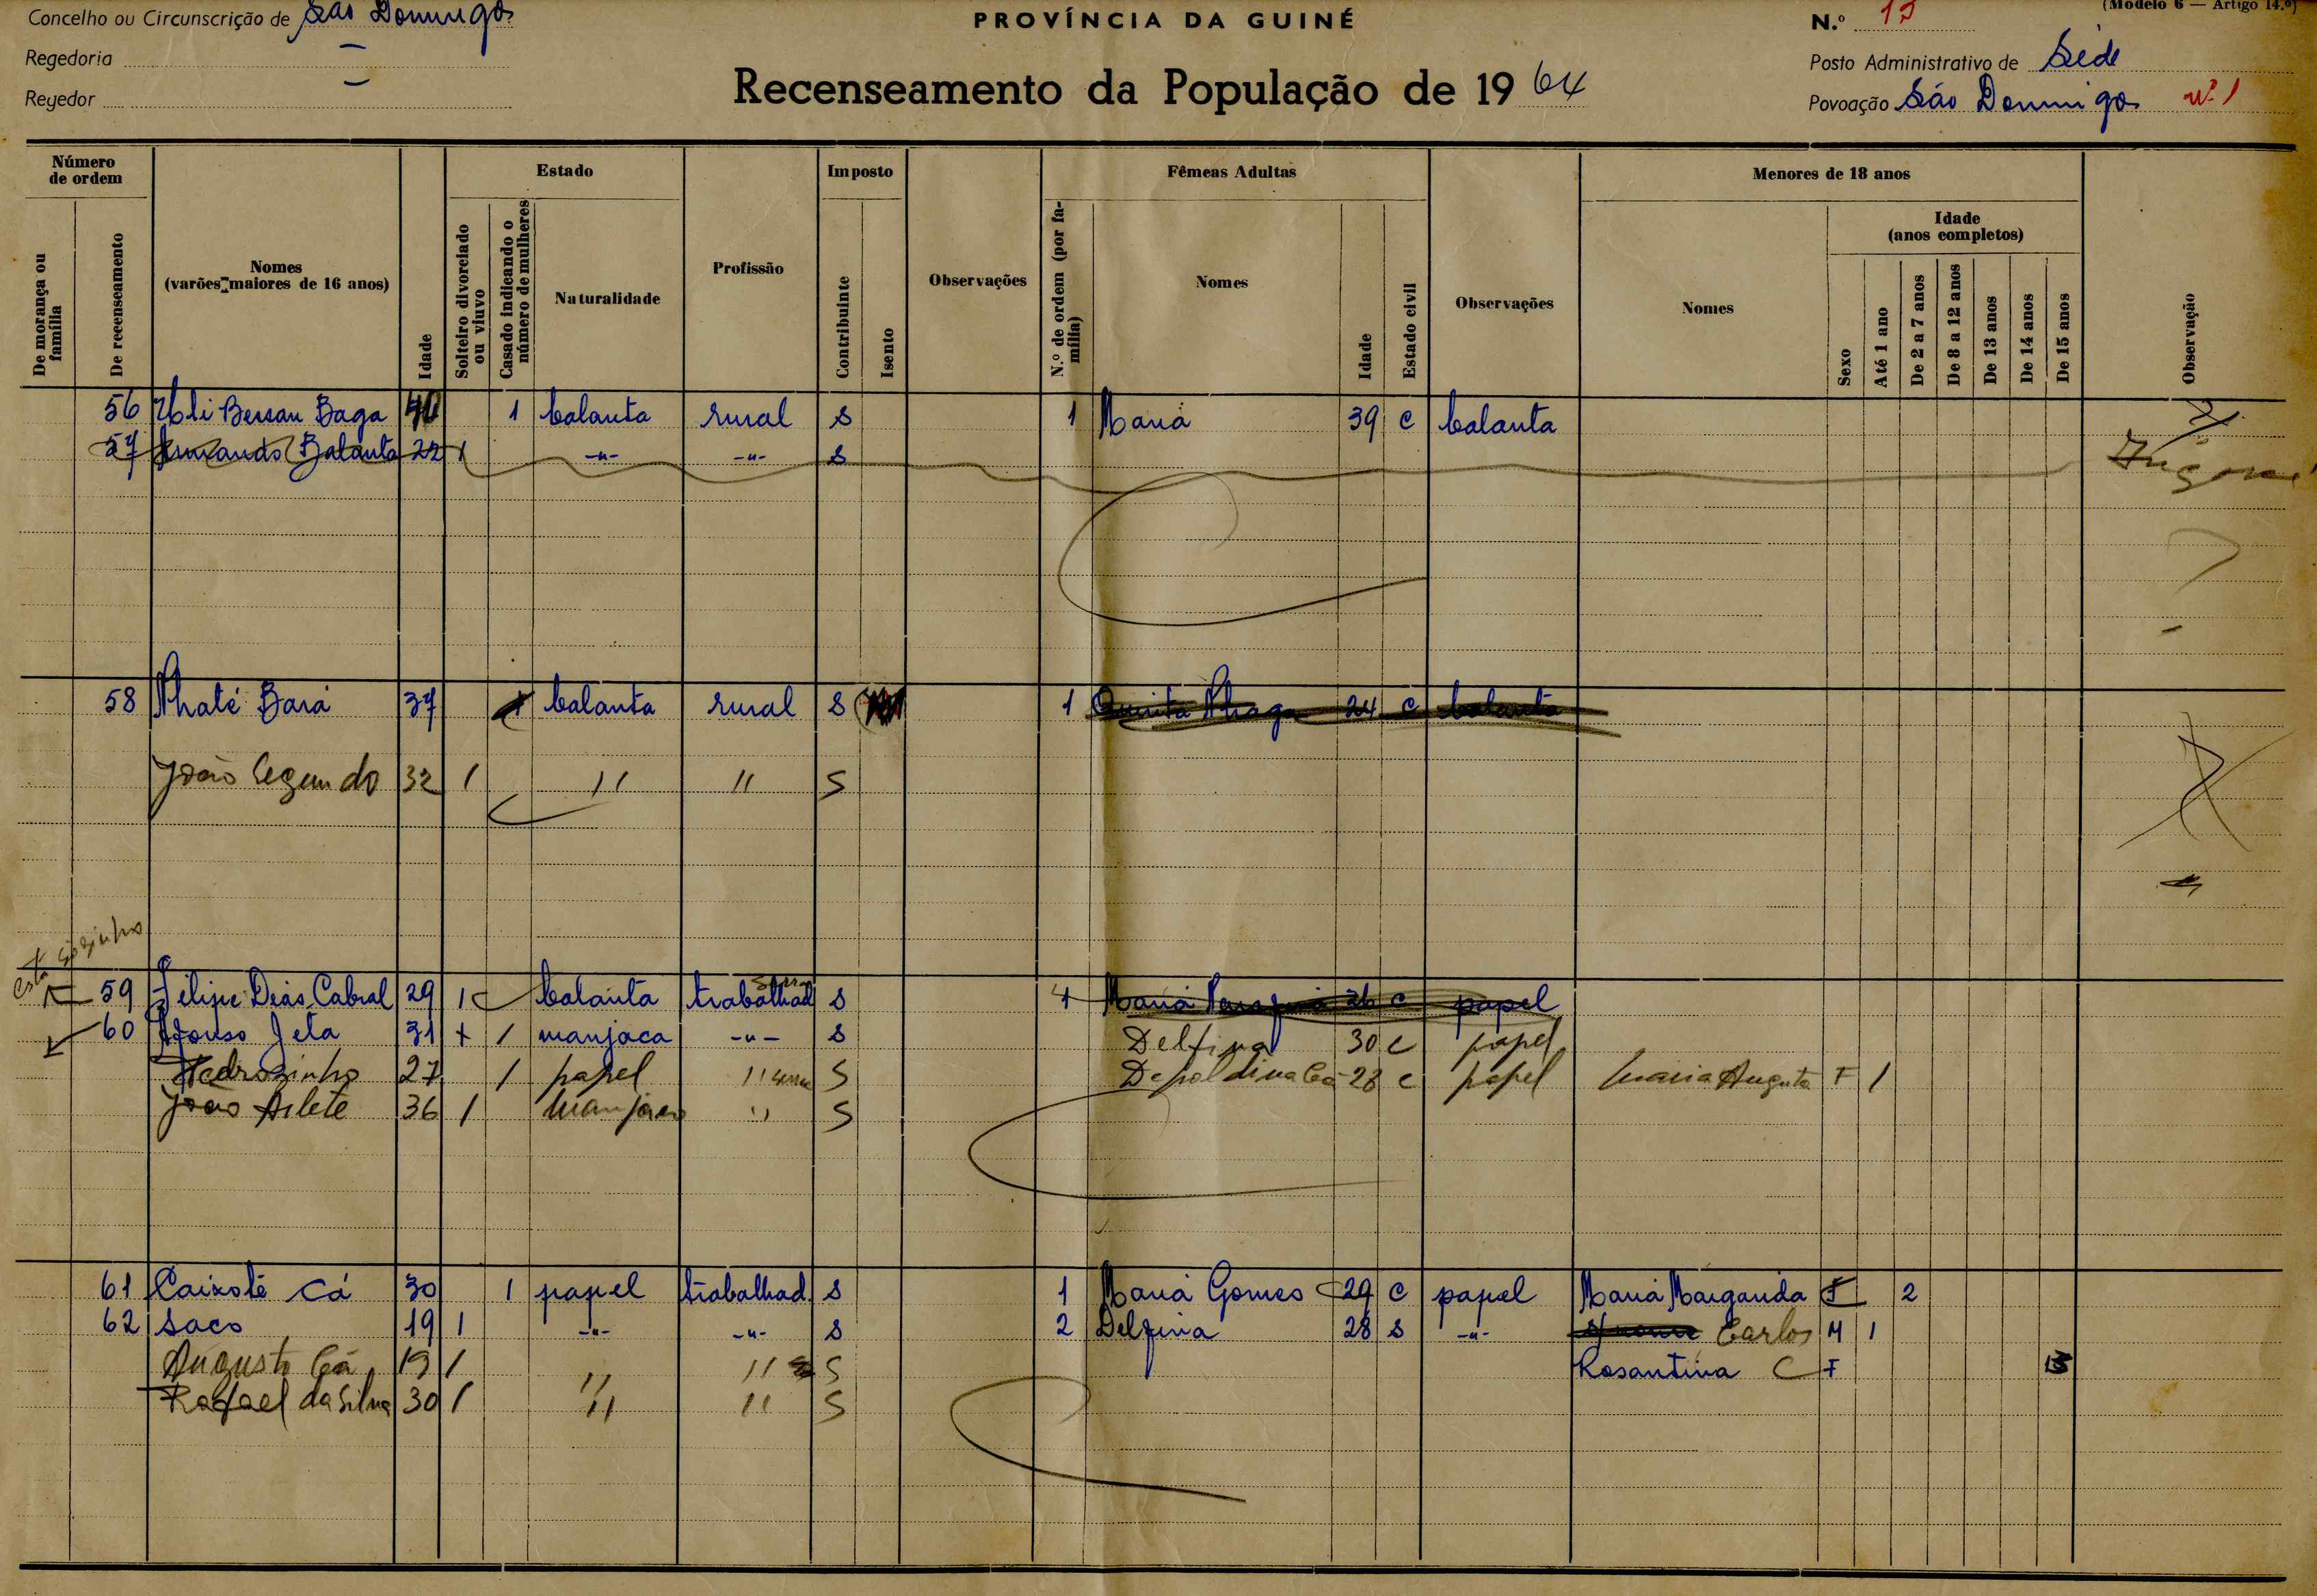 Concelho ou Circunscrição de São Domingos
PROVÍNCIA DA GUINÉ
N.º 17
(Modelo 6 — Artigo 14.º)
Regedoria —
Posto Administrativo de Séde
Regedor —
Recenseamento da População de 1964
Povoação São Domingos nº 1
Número de ordem
Estado
Imposto
Fêmeas Adultas
Menores de 18 anos
De morança ou família
De recenseamento
Nomes
(varões maiores de 16 anos)
Idade
Solteiro divorciado ou viuvo
Casado indicando o número de mulheres
Naturalidade
Profissão
Contribuinte
Isento
Observações
N.º de ordem (por família)
Nomes
Idade
Estado civil
Observações
Nomes
Sexo
Idade
(anos completos)
Até 1 ano
De 2 a 7 anos
De 8 a 12 anos
De 13 anos
De 14 anos
De 15 anos
Observação
56 Baga 40 1 balanta rural S 1 Maria 39 C balanta
57 Armando Balanta 22 1 -"- -"- S
58 Nhaté Bará 37 balanta rural S 1 24 C balanta
João Segundo 32 / " " S
Está sózinho
59 Felipe Dias Cabral 29 1 balanta trabalhad S 1 Maria 26 C papel
60 Afonso Jeta 31 + / manjaca -"- S Delfina 30 C papel
Pedrozinho 27 / papel " S 28 C papel Maria Augusta F /
João Arlete 36 / manjaco " S
61 Caixote Cá 30 1 papel trabalhad. S 1 Maria Gomes 29 C papel Maria Margarida F 2
62 Saco 19 1 -"- -"- S 2 Delfina 28 S -"- Carlos M 1
Augusto Cá 19 / " " S Rosantina C F 15
Rafael da Silva 30 / " " S